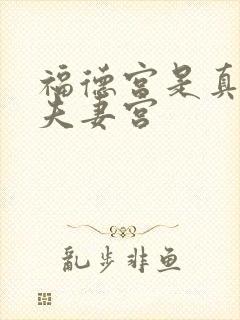 福德宫是真
夫妻宫
乱步非鱼